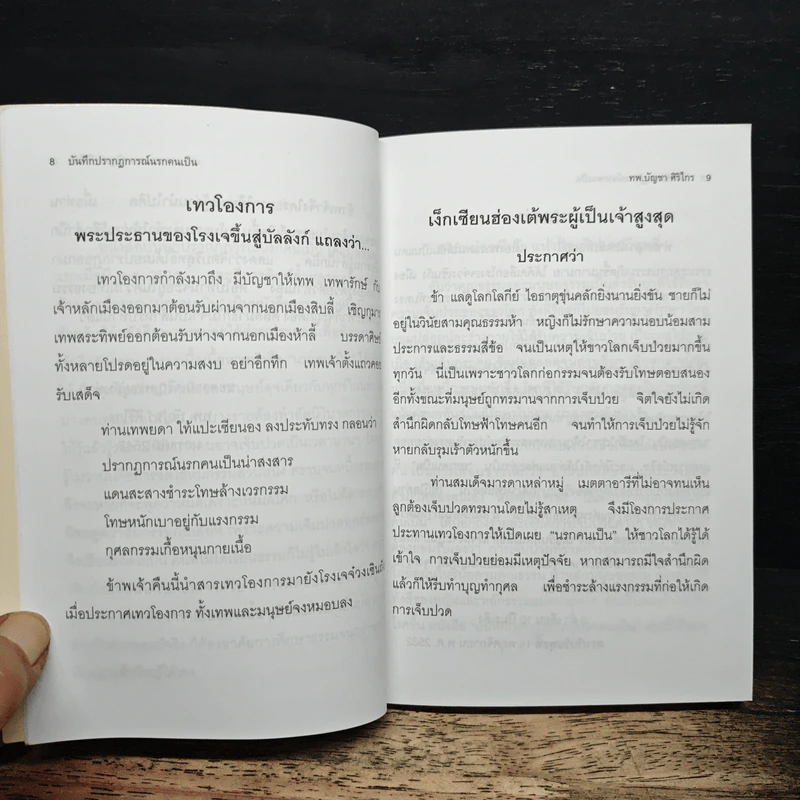 8 บันทึกปรากฏการณ์นรกคนเป็น
เทวโองการ
พระประธานของโรงเจขึ้นสู่บัลลังก์ แถลงว่า...
เทวโองการกำลังมาถึง มีบัญชาให้เทพ เทพารักษ์
เจ้าหลักเมืองออกมาต้อนรับผ่านจากนอกเมืองสิบลี้ เชิญ
เทพสระทิพย์ออกต้อนรับห่างจากนอกเมืองห้าลี้ บรรดาศิษย์
ทั้งหลายโปรดอยู่ในความสงบ อย่าอึกทึก เทพเจ้าตั้งแถวคอย
รับเสด็จ
ท่านเทพยดา ให้แปะเซียนอง ลงประทับทรง กลอนว่า
ปรากฏการณ์นรกคนเป็นน่าสงสาร
แดนสะสางชำระโทษล้างเวรกรรม
โทษหนักเบาอยู่กับแรงกรรม
กุศลกรรมเกื้อหนุนกายเนื้อ
ข้าพเจ้าคืนนี้นำสารเทวโองการมายังโรงเจจ๋วงเซิน
เมื่อประกาศเทวโองการ ทั้งเทพและมนุษย์จงหมอบลง
ทพ.บัญชา ศิริไกร 9
เง็กเซียนฮ่องเต้พระผู้เป็นเจ้าสูงสุด
ประกาศว่า
ข้า แลดูโลกโลกีย์ ไอธาตุขุ่นคลักยิ่งนานยิ่งข้น ชายก็ไม่
อยู่ในวินัยสามคุณธรรมห้า หญิงก็ไม่รักษาความนอบน้อมสาม
ประการและธรรมสี่ข้อ จนเป็นเหตุให้ชาวโลกเจ็บป่วยมากขึ้น
ทุกวัน นี่เป็นเพราะชาวโลกก่อกรรมจนต้องรับโทษตอบสนอง
อีกทั้งขณะที่มนุษย์ถูกทรมานจากการเจ็บป่วย จิตใจยังไม่เกิด
สำนึกผิดกลับโทษฟ้าโทษคนอีก จนทำให้การเจ็บป่วยไม่รู้จัก
หายกลับรุมเร้าตัวหนักขึ้น
ท่านสมเด็จมารดาเหล่าหมู่ เมตตาอารีที่ไม่อาจทนเห็น
ลูกต้องเจ็บปวดทรมานโดยไม่รู้สาเหตุ จึงมีโองการประกาศ
ประทานเทวโองการให้เปิดเผย “นรกคนเป็น” ให้ชาวโลกได้รู้ได้
เข้าใจ การเจ็บป่วยย่อมมีเหตุปัจจัย หากสามารถมีใจสำนึกผิด
แล้วก็ให้รีบทำบุญทำกุศล เพื่อชำระล้างแรงกรรมที่ก่อให้เกิด
การเจ็บปวด